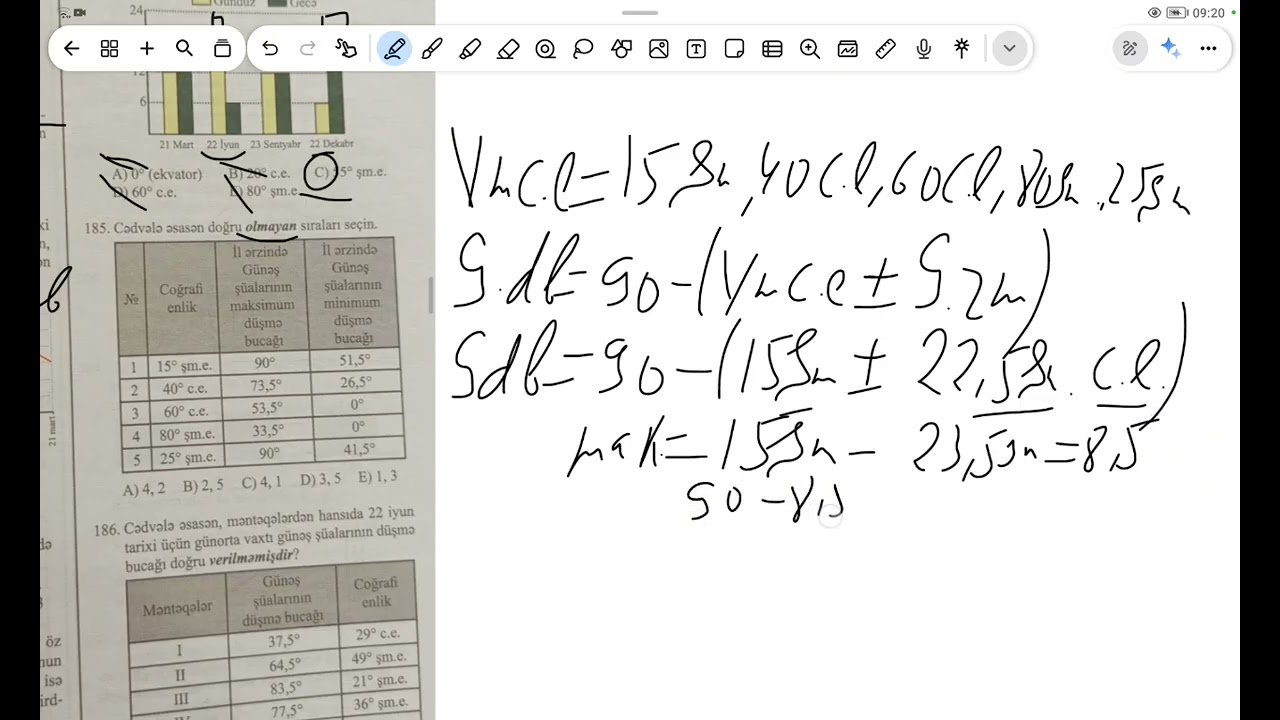 24
Gündüz Gecə
09:20
12
6
21 Mart 22 İyun 23 Sentyabr 22 Dekabr
A) 0° (ekvator) B) 20° c.e. C) 55° şm.e.
D) 60° c.e. E) 80° şm.e.
185. Cədvələ əsasən doğru olmayan sıraları seçin.
№ Coğrafi enlik İl ərzində Günəş şüalarının maksimum düşmə bucağı İl ərzində Günəş şüalarının minimum düşmə bucağı
1 15° şm.e. 90° 51,5°
2 40° c.e. 73,5° 26,5°
3 60° c.e. 53,5° 0°
4 80° şm.e. 33,5° 0°
5 25° şm.e. 90° 41,5°
A) 4, 2 B) 2, 5 C) 4, 1 D) 3, 5 E) 1, 3
186. Cədvələ əsasən, məntəqələrdən hansıda 22 iyun
tarixi üçün günorta vaxtı günəş şüalarının düşmə
bucağı doğru verilməmişdir?
Məntəqələr Günəş şüalarının düşmə bucağı Coğrafi enlik
I 37,5° 29° c.e.
II 64,5° 49° şm.e.
III 83,5° 21° şm.e.
77,5° 36° şm.e.
21 mart
öz
isə
YmC.e=15Şm, 40C.e, 60C.e, 80Şm, 25Şm
G.db=90-(YmC.e±G.zm)
Gdb=90-(15Şm±22,5Şm. C.e.)
max=15Şm-23,5Şm=8,5
90-8,5